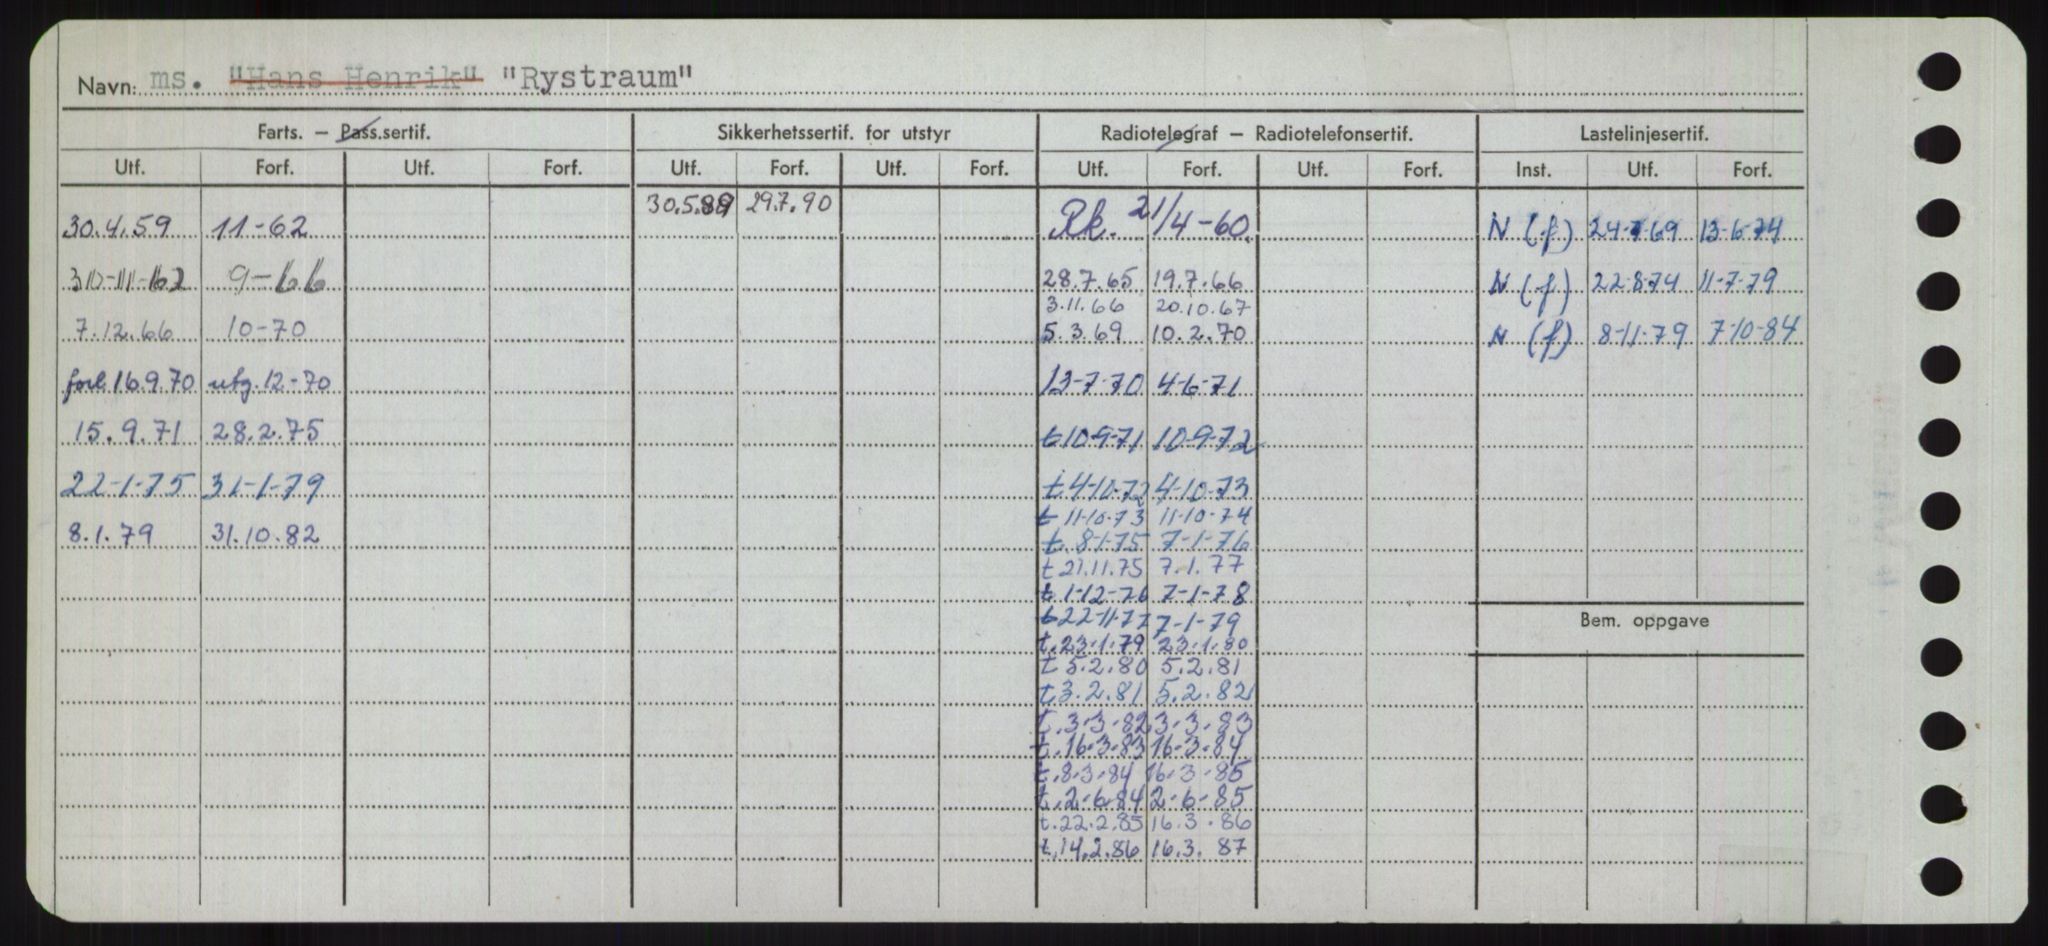 Navn: ms. "Hans Henrik" "Rystraum"
Farts. — Pass.sertif. Sikkerhetssertif. for utstyr Radiotelegraf — Radiotelefonsertif. Lastelinjesertif.
Utf. Forf. Utf. Forf. Utf. Forf. Utf. Forf. Utf. Forf. Utf. Forf. Inst. Utf. Forf.
30.5.89 29.7.90
30.4.59 11-62 Rk. 21/4-60. N (f) 24-7-69 13-6-74
30-11-62 9-66 28.7.65 19.7.66 N (f) 22-8-74 11-7-79
3.11.66 20.10.67
7.12.66 10-70 5.3.69 10.2.70 N (f) 8-11-79 7-10-84
forl. 16.9.70 utg. 12-70 13-7-70 4-6-71
15.9.71 28.2.75 t 10-9-71 10-9-72
22-1-75 31-1-79 t 4-10-72 4-10-73
t 11-10-73 11-10-74
8.1.79 31.10.82 t. 8-1-75 7-1-76
t 21.11.75 7.1.77
t 1-12-76 7-1-78
t 22-11-77 7-1-79
Bem. oppgave
t. 23.1.79 23.1.80
t 5.2.80 5.2.81
t. 3.2.81 5.2.82
t. 3-3-82 3-3-83
t. 16-3-83 16-3-84
t. 8-3-84 16-3-85
t. 2-6-84 2-6-85
t. 22.2.85 16.3.86
t. 14.2.86 16.3.87